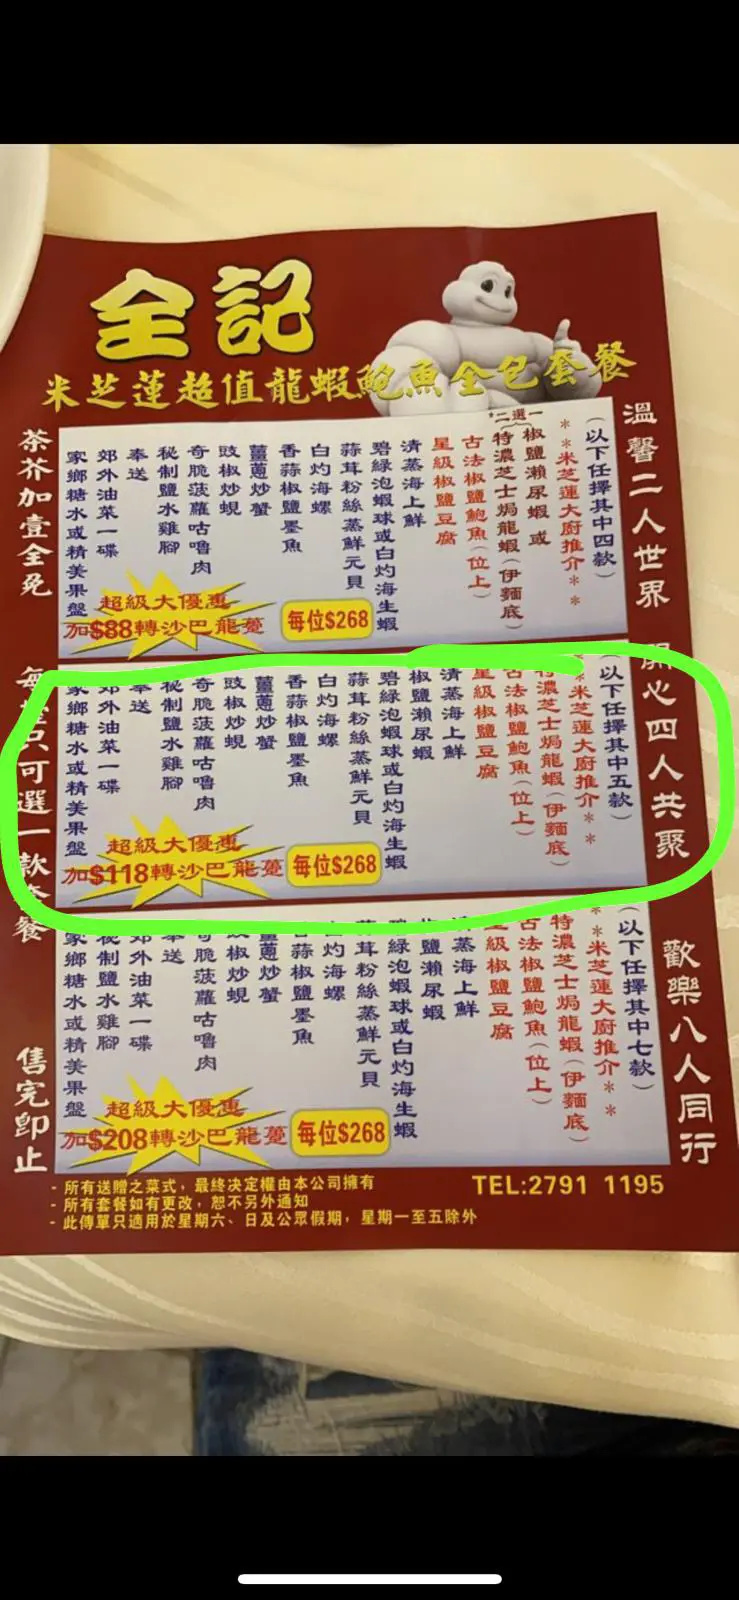 全記
米芝蓮超值龍蝦鮑魚全包套餐
溫馨二人世界
(以下任擇其中四款)
**米芝蓮大廚推介**
*二選一
椒鹽瀨尿蝦或
特濃芝士焗龍蝦(伊麵底)
古法椒鹽鮑魚(位上)
星級椒鹽豆腐
清蒸海上鮮
碧綠泡蝦球或白灼海生蝦
蒜茸粉絲蒸鮮元貝
白灼海螺
香蒜椒鹽墨魚
薑蔥炒蟹
豉椒炒蜆
奇脆菠蘿咕嚕肉
秘制鹽水雞腳
奉送
郊外油菜一碟
家鄉糖水或精美果盤
超級大優惠
加$88轉沙巴龍躉
每位$268
開心四人共聚
(以下任擇其中五款)
**米芝蓮大廚推介**
特濃芝士焗龍蝦(伊麵底)
古法椒鹽鮑魚(位上)
星級椒鹽豆腐
清蒸海上鮮
椒鹽瀨尿蝦
碧綠泡蝦球或白灼海生蝦
蒜茸粉絲蒸鮮元貝
白灼海螺
香蒜椒鹽墨魚
薑蔥炒蟹
豉椒炒蜆
奇脆菠蘿咕嚕肉
秘制鹽水雞腳
奉送
郊外油菜一碟
家鄉糖水或精美果盤
超級大優惠
加$118轉沙巴龍躉
每位$268
歡樂八人同行
(以下任擇其中七款)
**米芝蓮大廚推介**
特濃芝士焗龍蝦(伊麵底)
古法椒鹽鮑魚(位上)
星級椒鹽豆腐
清蒸海上鮮
椒鹽瀨尿蝦
碧綠泡蝦球或白灼海生蝦
蒜茸粉絲蒸鮮元貝
白灼海螺
香蒜椒鹽墨魚
薑蔥炒蟹
豉椒炒蜆
奇脆菠蘿咕嚕肉
奉送
郊外油菜一碟
秘制鹽水雞腳
家鄉糖水或精美果盤
超級大優惠
加$208轉沙巴龍躉
每位$268
茶芥加壹全免
每只可選一款套餐
售完即止
- 所有送贈之菜式，最終決定權由本公司擁有
- 所有套餐如有更改，恕不另外通知
- 此傳單只適用於星期六、日及公眾假期，星期一至五除外
TEL:2791 1195